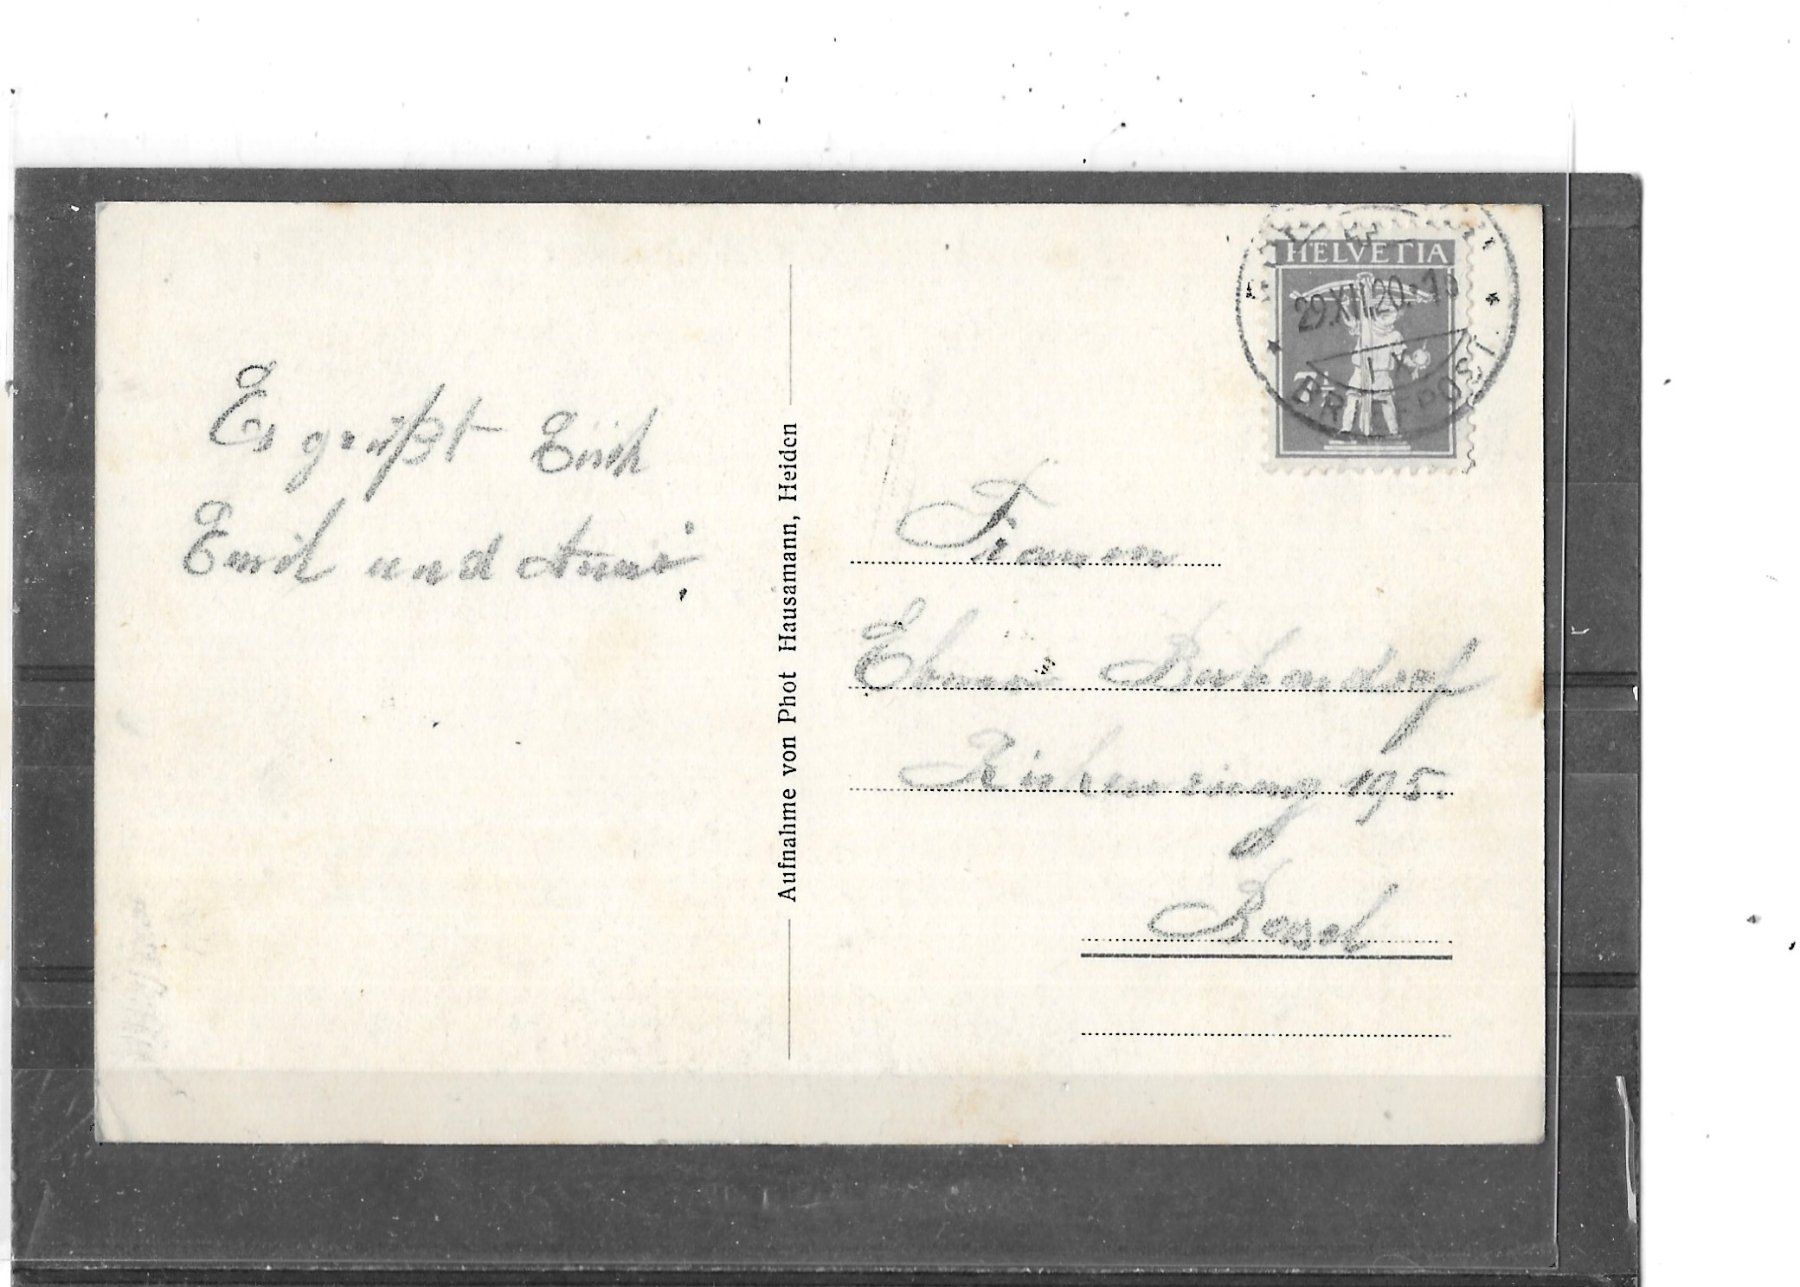 Es grüßt Euch
Emil und Anni.
Aufnahme von Phot Hausamann, Heiden
HELVETIA
29.XII.20.
BRIEFPOST
IX
Riehenring 195.
Basel